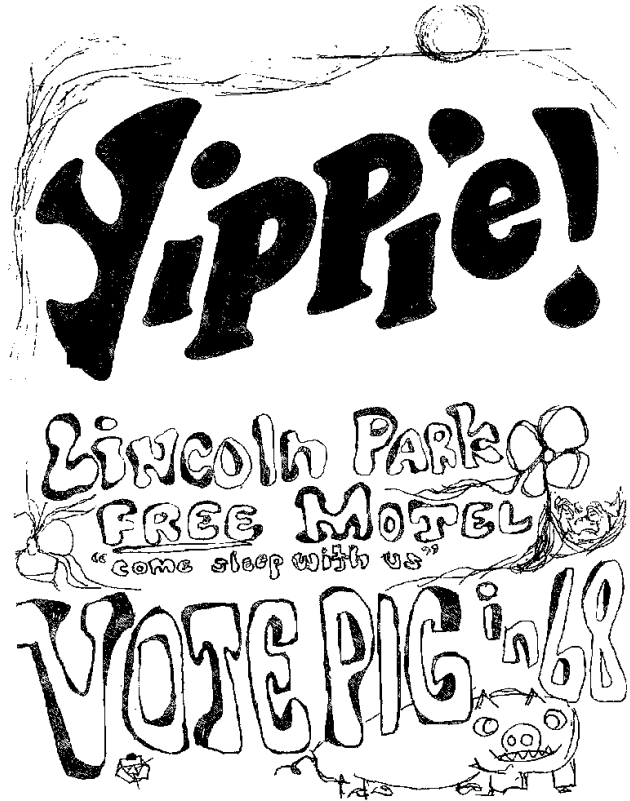 Yippie!
Lincoln Park
FREE MOTEL
“come sleep with us”
VOTE PIG in 68